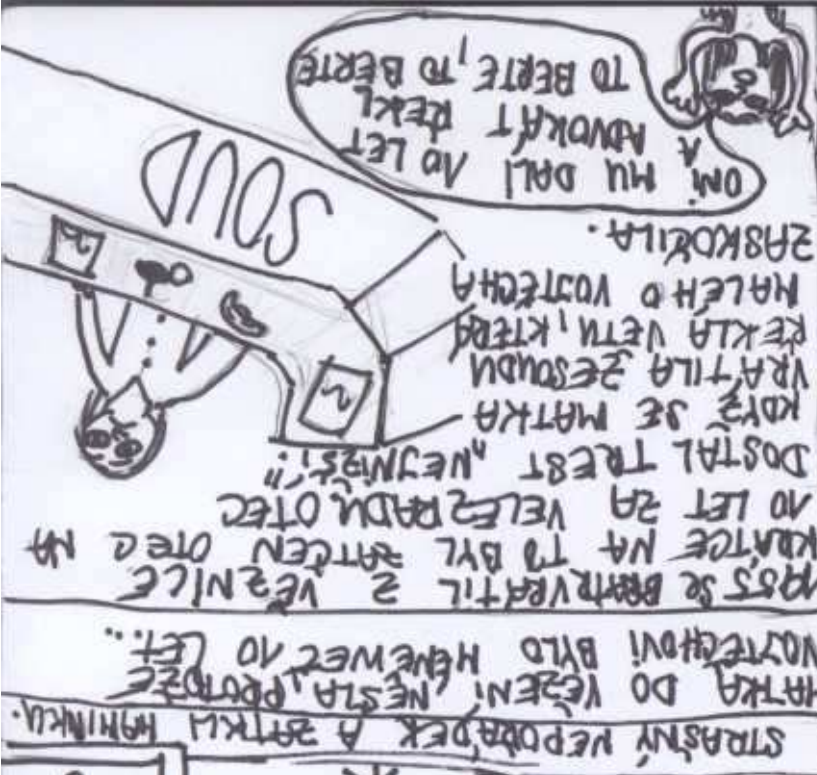 STRAŠNÝ NEPOŘÁDEK A ZATKLI MAMINKU.
MATKA DO VĚZENÍ NEŠLA, PROTOŽE
VOJTĚCHOVI BYLO MÉNĚ NEŽ 10 LET...
1955 SE BRATR VRÁTIL Z VĚZNICE
KRÁTCE NA TO BYL ZATČEN OTEC NA
10 LET ZA VELEZRADU. OTEC
DOSTAL TREST „NEJNIŽŠÍ“
KDYŽ SE MATKA
VRÁTILA ZE SOUDU
ŘEKLA VĚTU, KTERÁ
MALÉHO VOJTĚCHA
ZASKOČILA.
ONI MU DALI 10 LET
A ADVOKÁT ŘEKL
TO BERTE, TO BERTE
SOUD